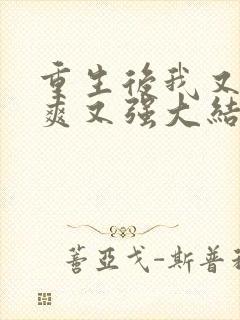 重生後我又
爽又强大結
蓍亞戈-斯普